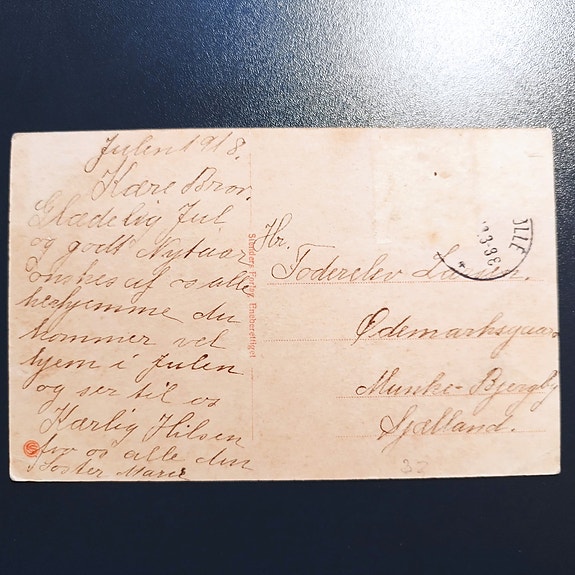 Julen 1918.
Kære Bror.
Glædelig Jul
og godt Nytaar
ønskes af os alle
herhjemme du
kommer vel
hjem i Julen
og ser til os
Kærlig Hilsen
fra os alle din
Søster Marie
Stenders Forlag. Eneberettiget
Hr.
Foderelev Larsen.
Ødemarksgaard
Munke-Bjergby
Sjælland.
32